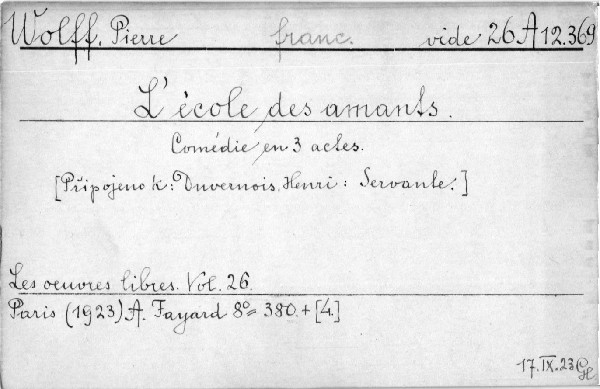 Wolff, Pierre franc. vide 26 A 12.369
L'école des amants.
Comédie en 3 actes.
[Připojeno k: Duvernois, Henri: Servante.]
Les oeuvres libres. Vol. 26.
Paris (1923) A. Fayard 8º= 380.+[4.]
17.IX.23 CH